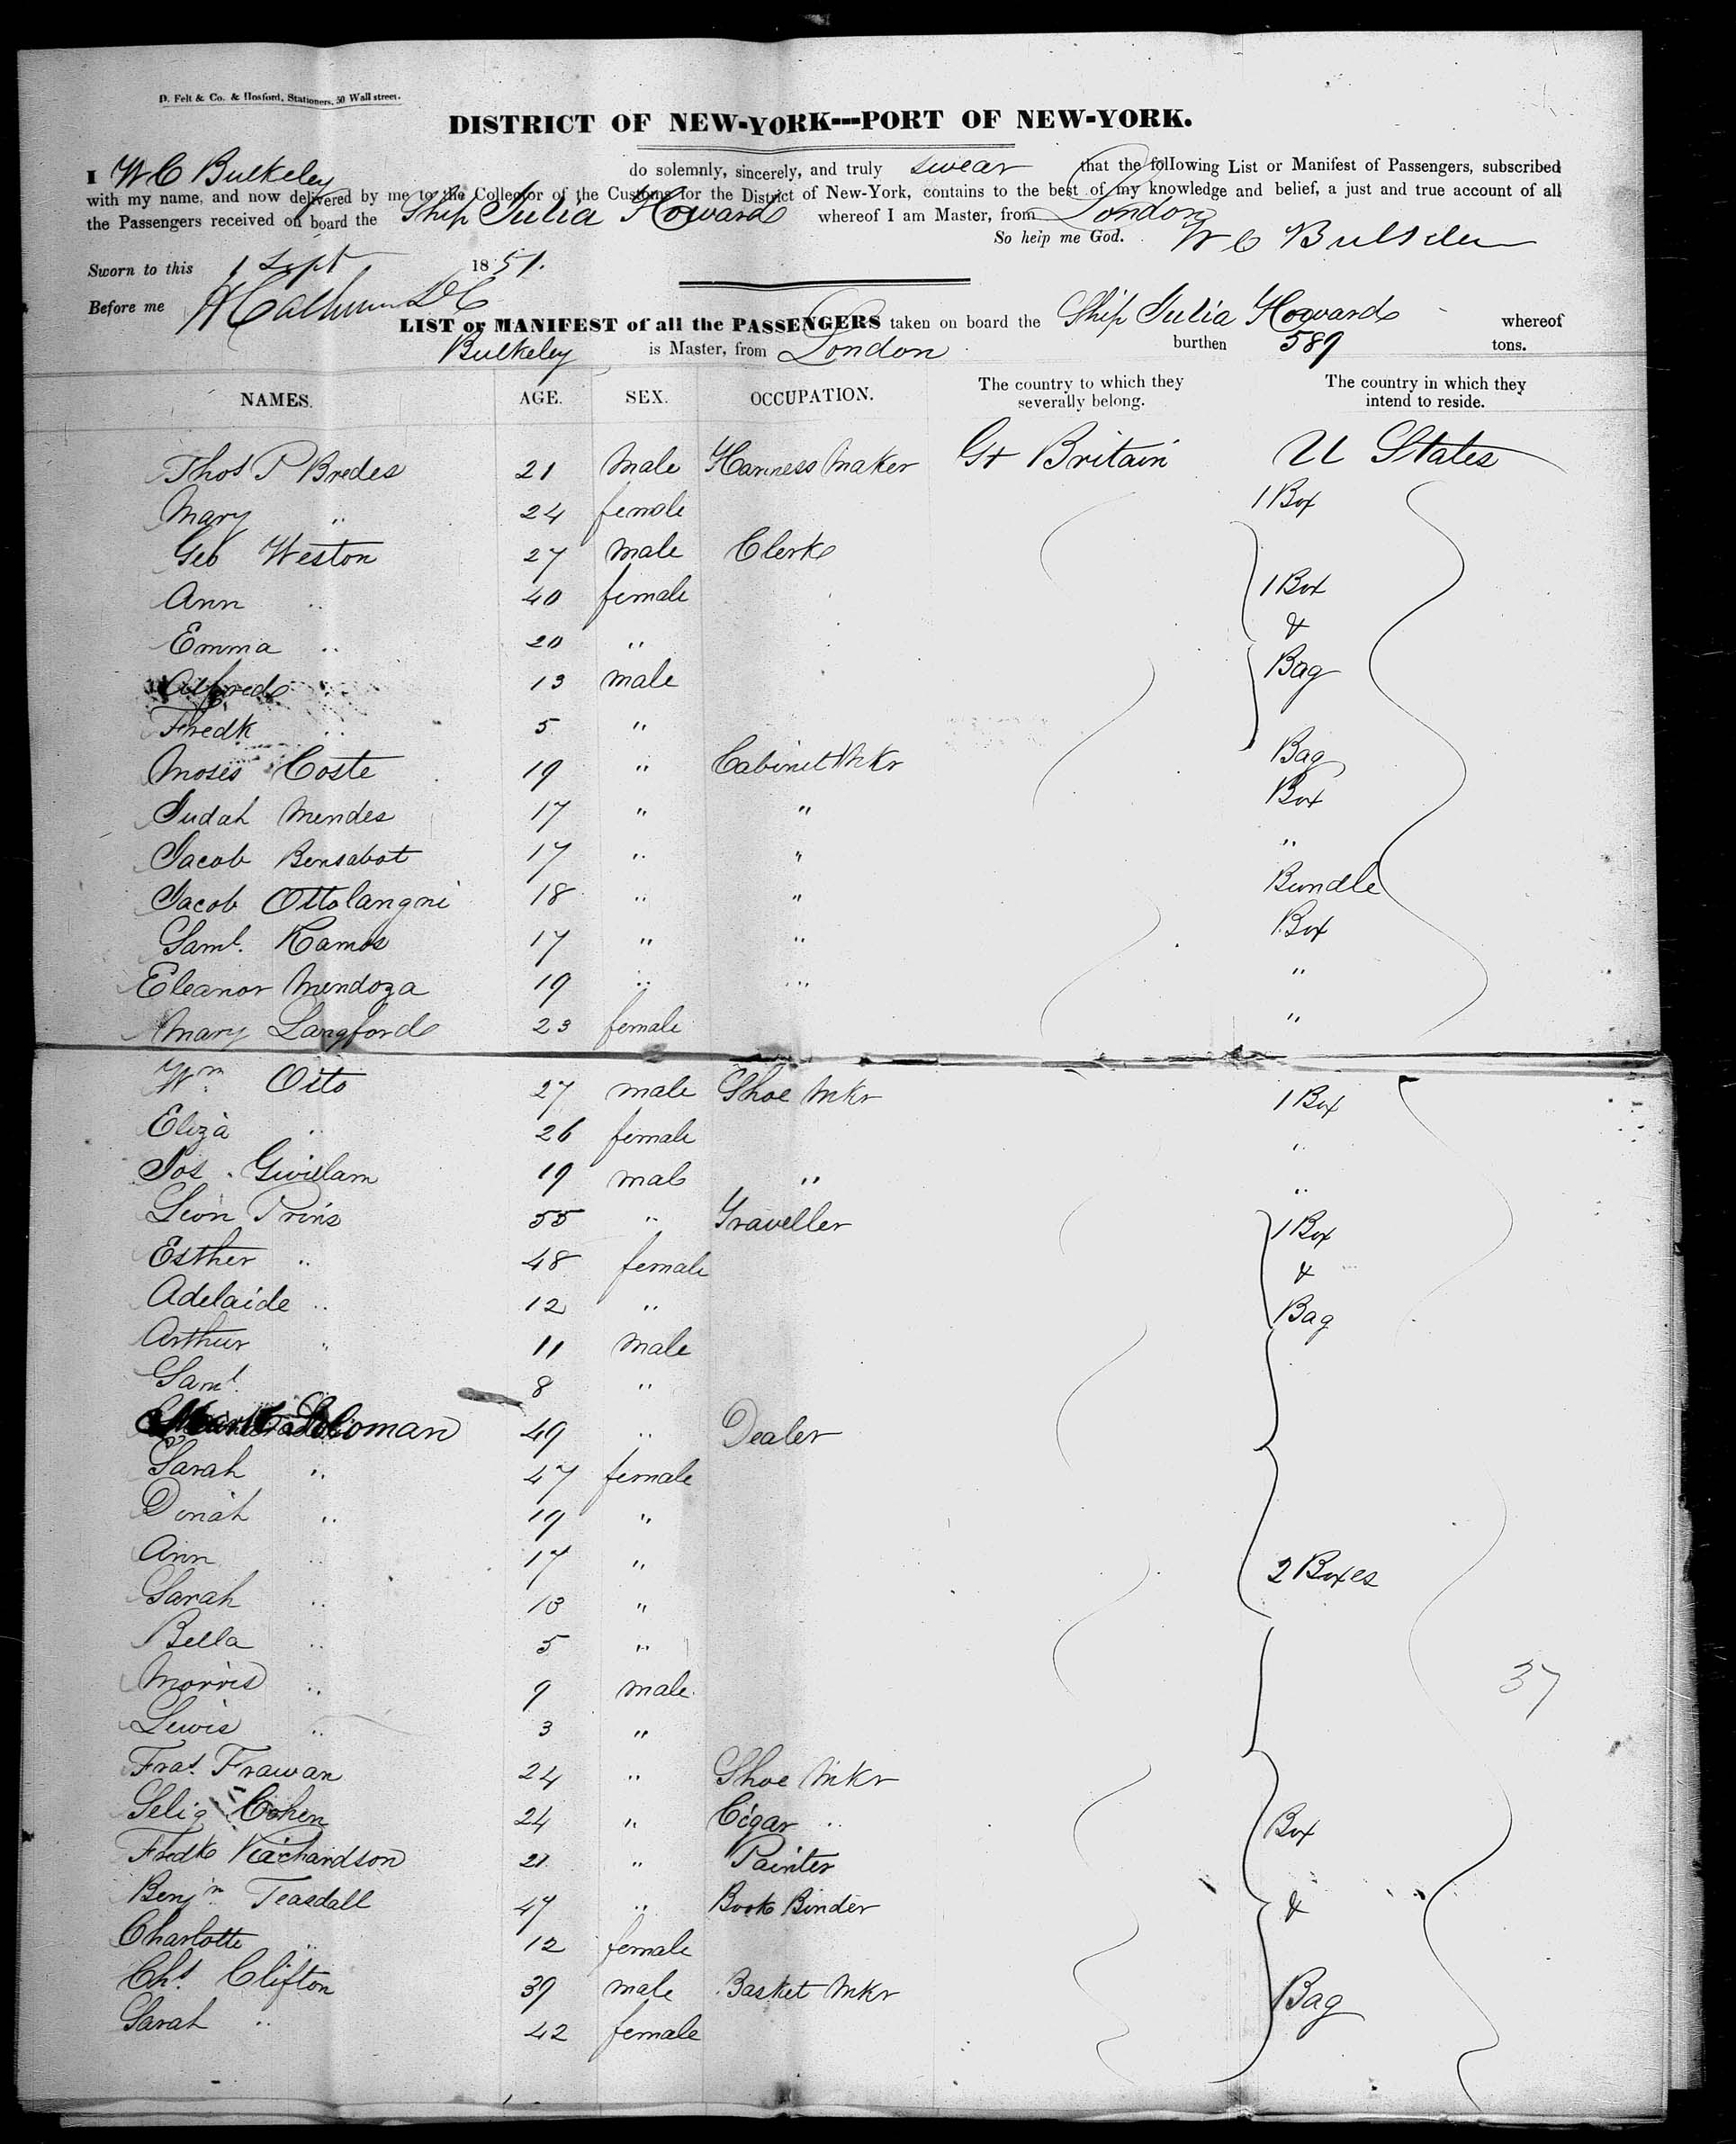 D. Felt & Co. & Hosford, Stationers, 50 Wall street.
DISTRICT OF NEW-YORK---PORT OF NEW-YORK.
I W C Bulkeley do solemnly, sincerely, and truly swear that the following List or Manifest of Passengers, subscribed
with my name, and now delivered by me to the Collector of the Customs for the District of New-York, contains to the best of my knowledge and belief, a just and true account of all
the Passengers received on board the Ship Julia Howard whereof I am Master, from London
So help me God. W C Bulkeley
Sworn to this 1 Sept 1851.
Before me
LIST or MANIFEST of all the PASSENGERS taken on board the Ship Julia Howard whereof
Bulkeley is Master, from London burthen 589 tons.
NAMES. AGE. SEX. OCCUPATION. The country to which they severally belong. The country in which they intend to reside.
Thos P Bredes 21 Male Harness Maker Gt Britain U States
Mary " 24 female 1 Box
Geo Weston 27 Male Clerk
Ann " 40 female 1 Box
Emma " 20 " &
Alfred " 13 male Bag
Fredk " 5 "
Moses Coste 19 " Cabinet Mkr Bag
Judah Mendes 17 " " Box
Jacob Bensabat 17 " " "
Jacob Ottolangni 18 " " Bundle
Saml. Ramos 17 " " Box
Eleanor Mendoza 19 " " "
Mary Langford 23 female "
Wm Otto 27 male Shoe Mkr 1 Box
Eliza " 26 female "
Jos. Gwillam 19 male " "
Leon Prins 55 " Traveller 1 Box
Esther " 48 female &
Adelaide " 12 " Bag
Arthur " 11 Male
Saml 8 "
Soloman 49 " Dealer
Sarah " 47 female
Dinah " 19 "
Ann " 17 " 2 Boxes
Sarah " 13 "
Bella " 5 "
Morris " 9 male 37
Lewis " 3 "
Fras. Frawan 24 " Shoe Mkr
Selig Cohen 24 " Cigar " Box
Fredk Richardson 21 " Painter
Benjn Teasdall 47 " Book Binder &
Charlotte " 12 female
Chs. Clifton 39 male Basket Mkr Bag
Sarah " 42 female